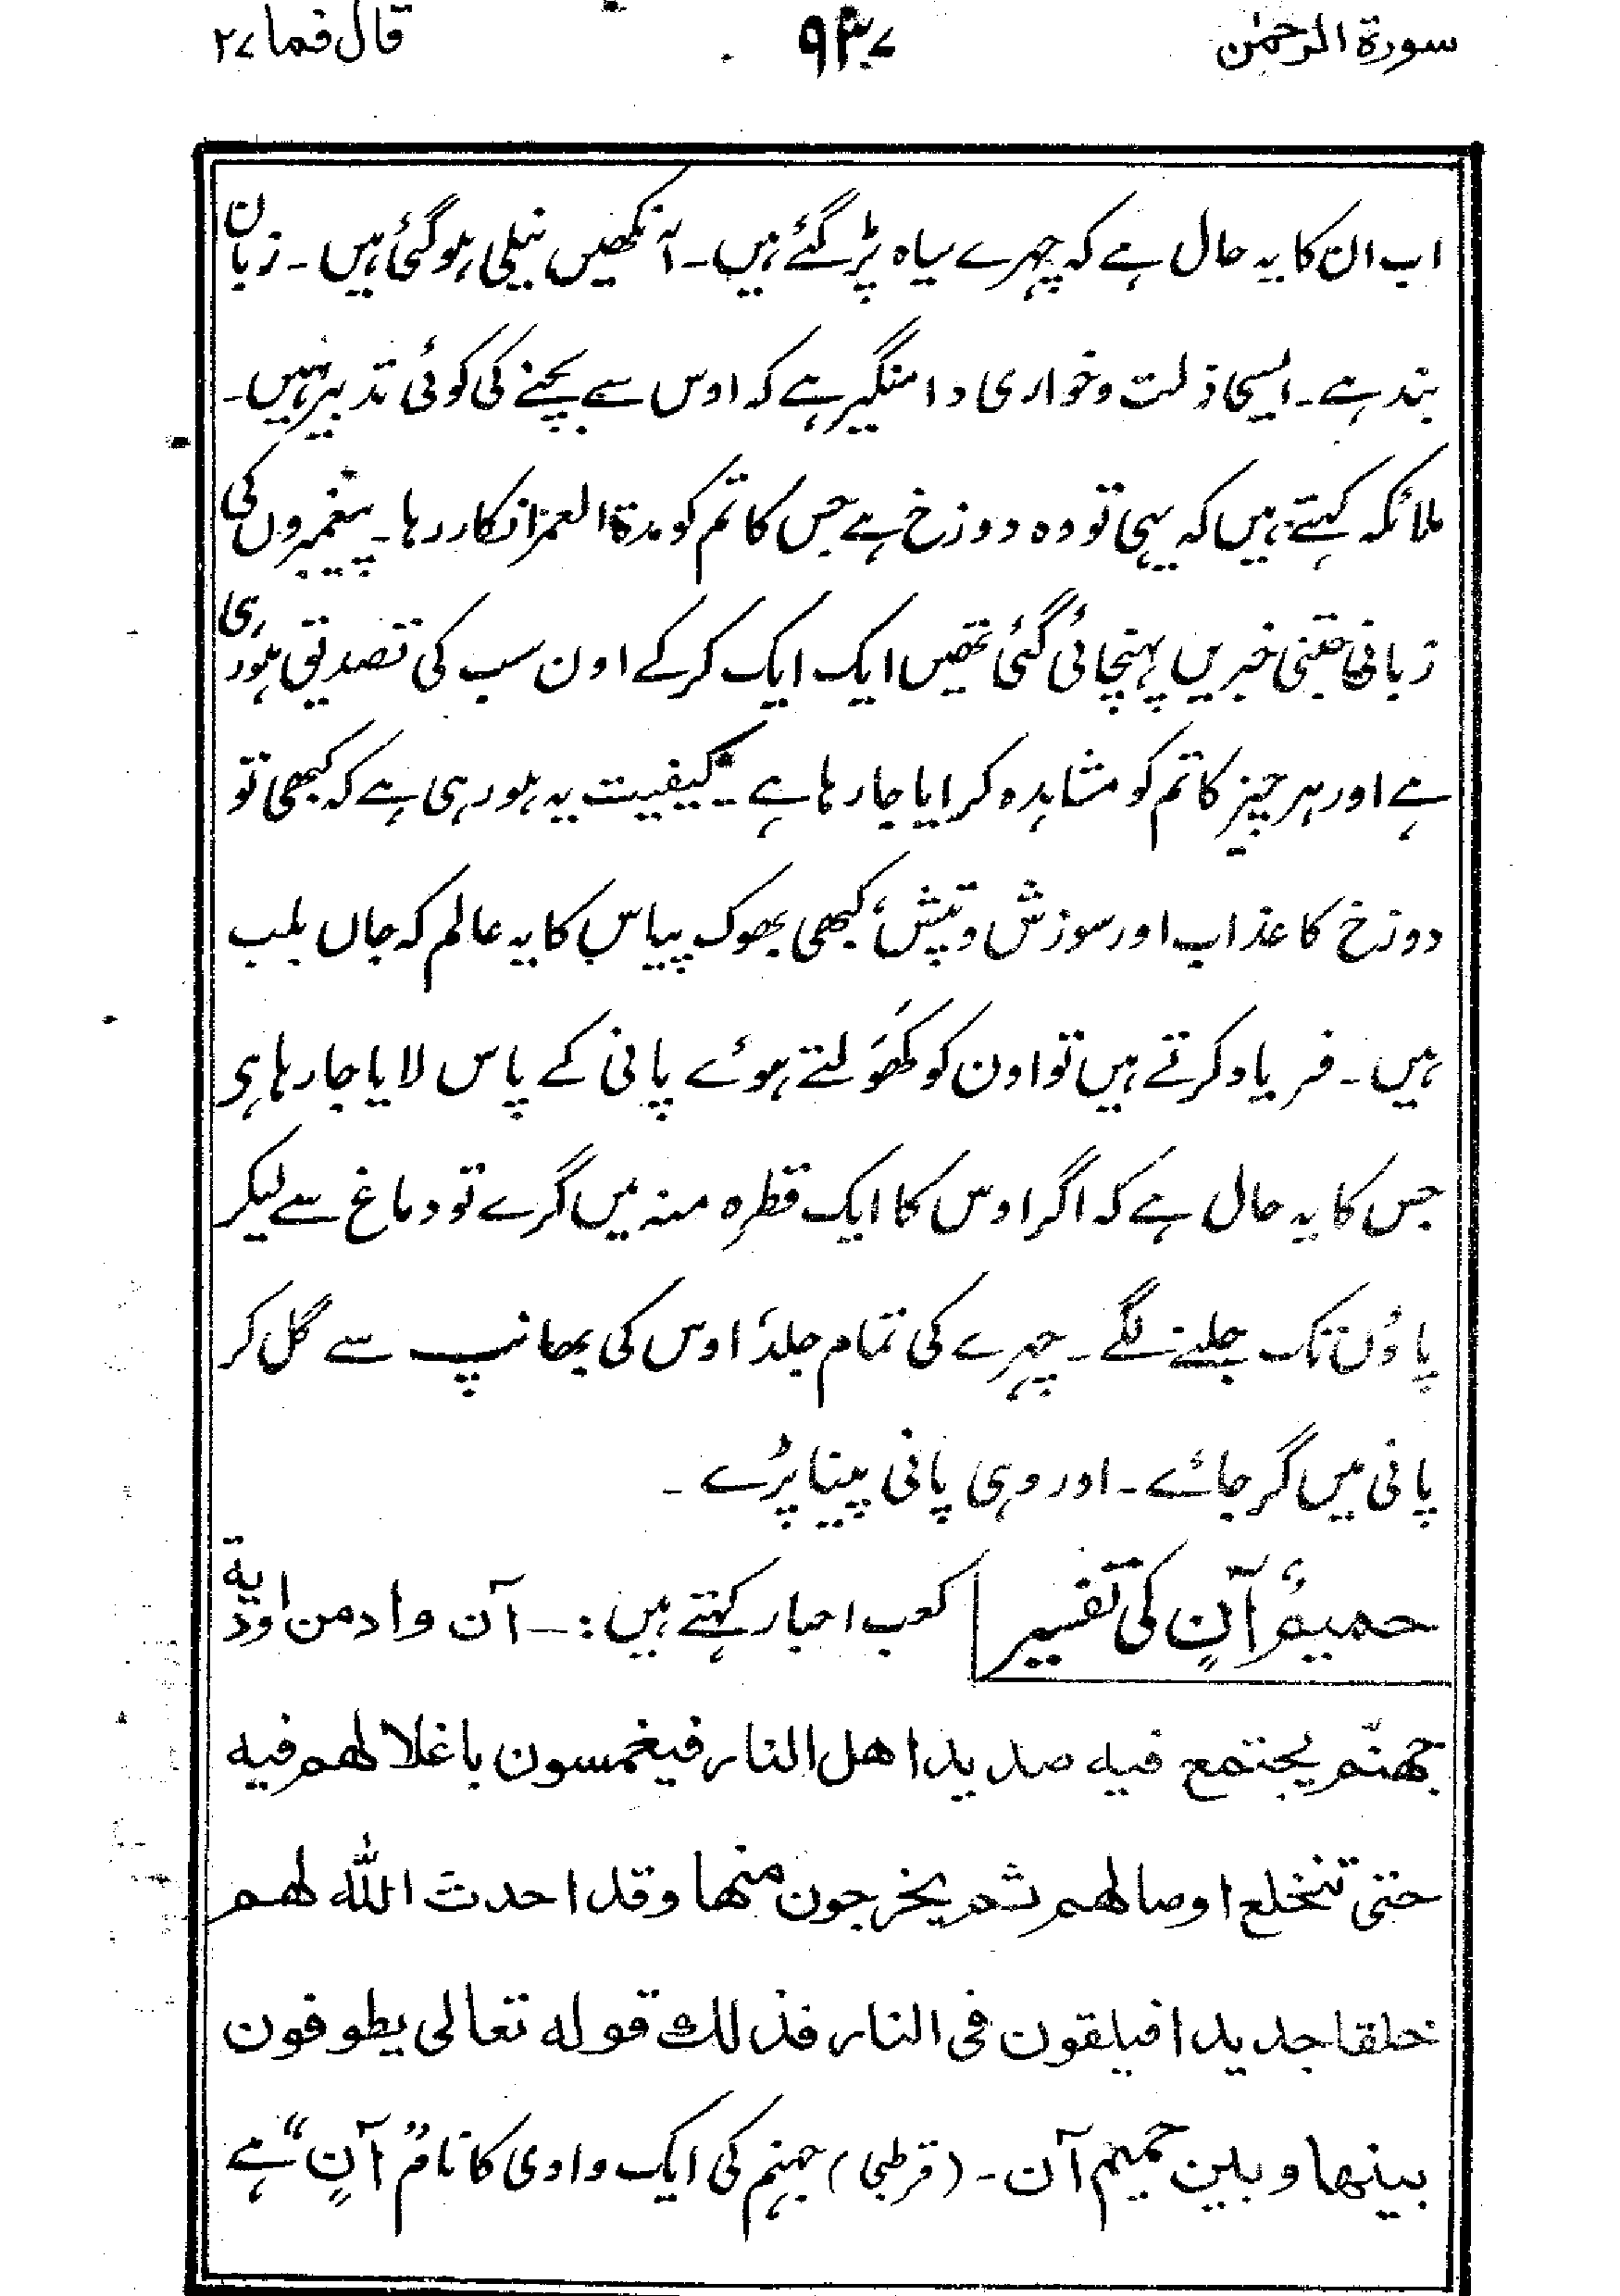 سورۃ الرحمٰن ۹۳۷ قال فما ۲۷
اب ان کا یہ حال ہے کہ چہرے سیاہ پڑ گئے ہیں۔ آنکھیں نیلی ہو گئی ہیں۔ زبان
بند ہے۔ ایسی ذلت و خواری دامنگیر ہے کہ اوس سے بچنے کی کوئی تدبیر نہیں۔
ملائکہ کہتے ہیں کہ یہی تو وہ دوزخ ہے جس کا تم کو مدۃ العمر انکار رہا۔ پیغمبروں کی
زبانی جتنی خبریں پہنچائی گئی تھیں ایک ایک کرکے اون سب کی تصدیق ہو رہی
ہے اور ہر چیز کا تم کو مشاہدہ کرایا جا رہا ہے۔ کیفیت یہ ہو رہی ہے کہ کبھی تو
دوزخ کا عذاب اور سوزش و تپش، کبھی بھوک پیاس کا یہ عالم کہ جاں بلب
ہیں۔ فریاد کرتے ہیں تو اون کو کھَولتے ہوئے پانی کے پاس لایا جا رہا ہی
جس کا یہ حال ہے کہ اگر اوس کا ایک قطرہ منہ میں گرے تو دماغ سے لیکر
پاؤں تک جلنے لگے۔ چہرے کی تمام جلد اوس کی بھانپ سے گل کر
پانی میں گر جائے۔ اور وہی پانی پینا پڑے۔
حمیمٍ آنٍ کی تفسیر کعب احبار کہتے ہیں:۔ آن واد من اودیة
جھنّم یجتمع فیه صدید اھل النار فیغمسون باغلالھم فیه
حتی تنخلع اوصالھم ثم یخرجون منھا وقد احدث اللّٰه لھم
خلقا جدیدا فیلقون فی النار فذلك قوله تعالی یطوفون
بینھا و بین حمیم آن۔ (قرطبی) جہنم کی ایک وادی کا نام "آنٍ" ہے